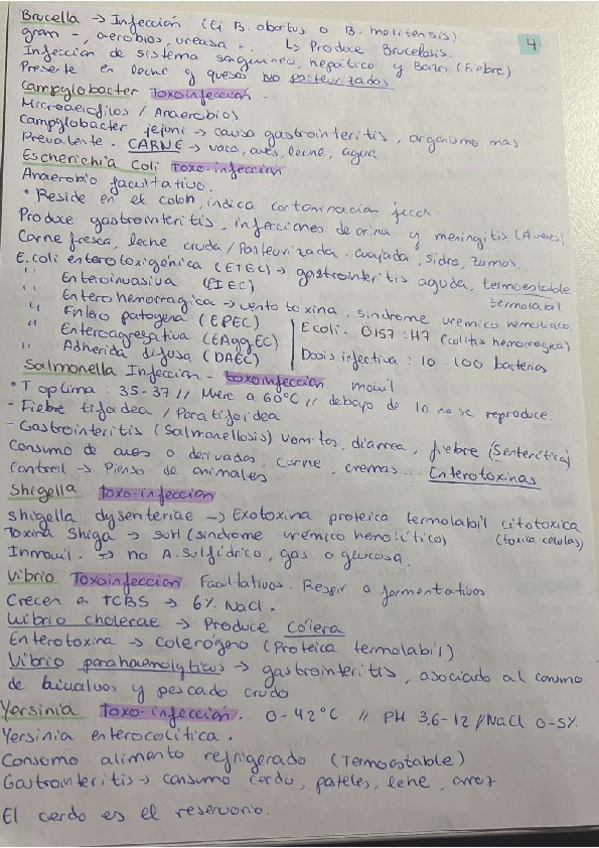 Brucella → Infección (Ej B. abortus o B. melitensis)
4
gram -, aerobios, ureasa +. ↳ Produce Brucelosis.
Infeccion de sistema sanguineo, hepatico y Bazo (Fiebre)
Presente en leche y quesos No pasteurizados
Campylobacter toxoinfeccion.
Microaerofilos / Anaerobios
Campylobacter jejuni → causa gastrointeritis, organismo mas
Prevalente. CARNE → vaca, aves, leche, agua
Escherichia Coli toxo-infeccion
Anaerobio facultativo.
• Reside en el colon, indica contaminacion fecal
Produce gastrointeritis, infecciones de orina y meningitis (A veces)
Carne fresca, leche cruda / Pasteurizada. cuajada, sidra, zumos.
E. coli enterotoxigénica (ETEC) → gastrointeritis aguda, termoestable
termolabil
" Enteroinvasiva (EIEC)
" Enterohemorragica → vero toxina, sindrome uremico hemolitico
" Entero patogena (EPEC) | Ecoli. O157:H7 (colitis hemorragica)
" Enteroagregativa (EAggEC)
" Adherida difusa (DAEC) | Dosis infectiva: 10-100 bacterias
Salmonella Infeccion - toxoinfeccion. movil
• T optima: 35-37 // Muere a 60°C // debajo de 10 no se reproduce.
- Fiebre tifoidea / Paratifoidea
- Gastrointeritis (Salmonellosis) vomitos, diarrea, fiebre (S.enteritica)
Consumo de aves o derivados, carne, cremas... Enterotoxinas
Control → Pienso de animales
Shigella toxo-infeccion
Shigella dysenteriae → Exotoxina proteica termolabil citotoxica
Toxina Shiga → SUH (sindrome urémico hemolitico) (toxica celulas)
Inmovil. → no A. Sulfidrico, gas o glucosa.
Vibrio Toxoinfeccion Facultativos. Respir o fermentativos
Crecen en TCBS → 6% NaCl.
Vibrio cholerae → Produce Cólera
Enterotoxina → colerógeno (Proteica termolabil)
Vibrio parahaemolyticus → gastrointeritis, asociado al consumo
de bivalvos y pescado crudo
Yersinia toxo-infeccion. 0-42°C // PH 3,6-12 // NaCl 0-5%
Yersinia enterocolitica.
Consumo alimento refrigerado (Termoestable)
Gastrointeritis → consumo cerdo, pasteles, leche, arroz
El cerdo es el reservorio.